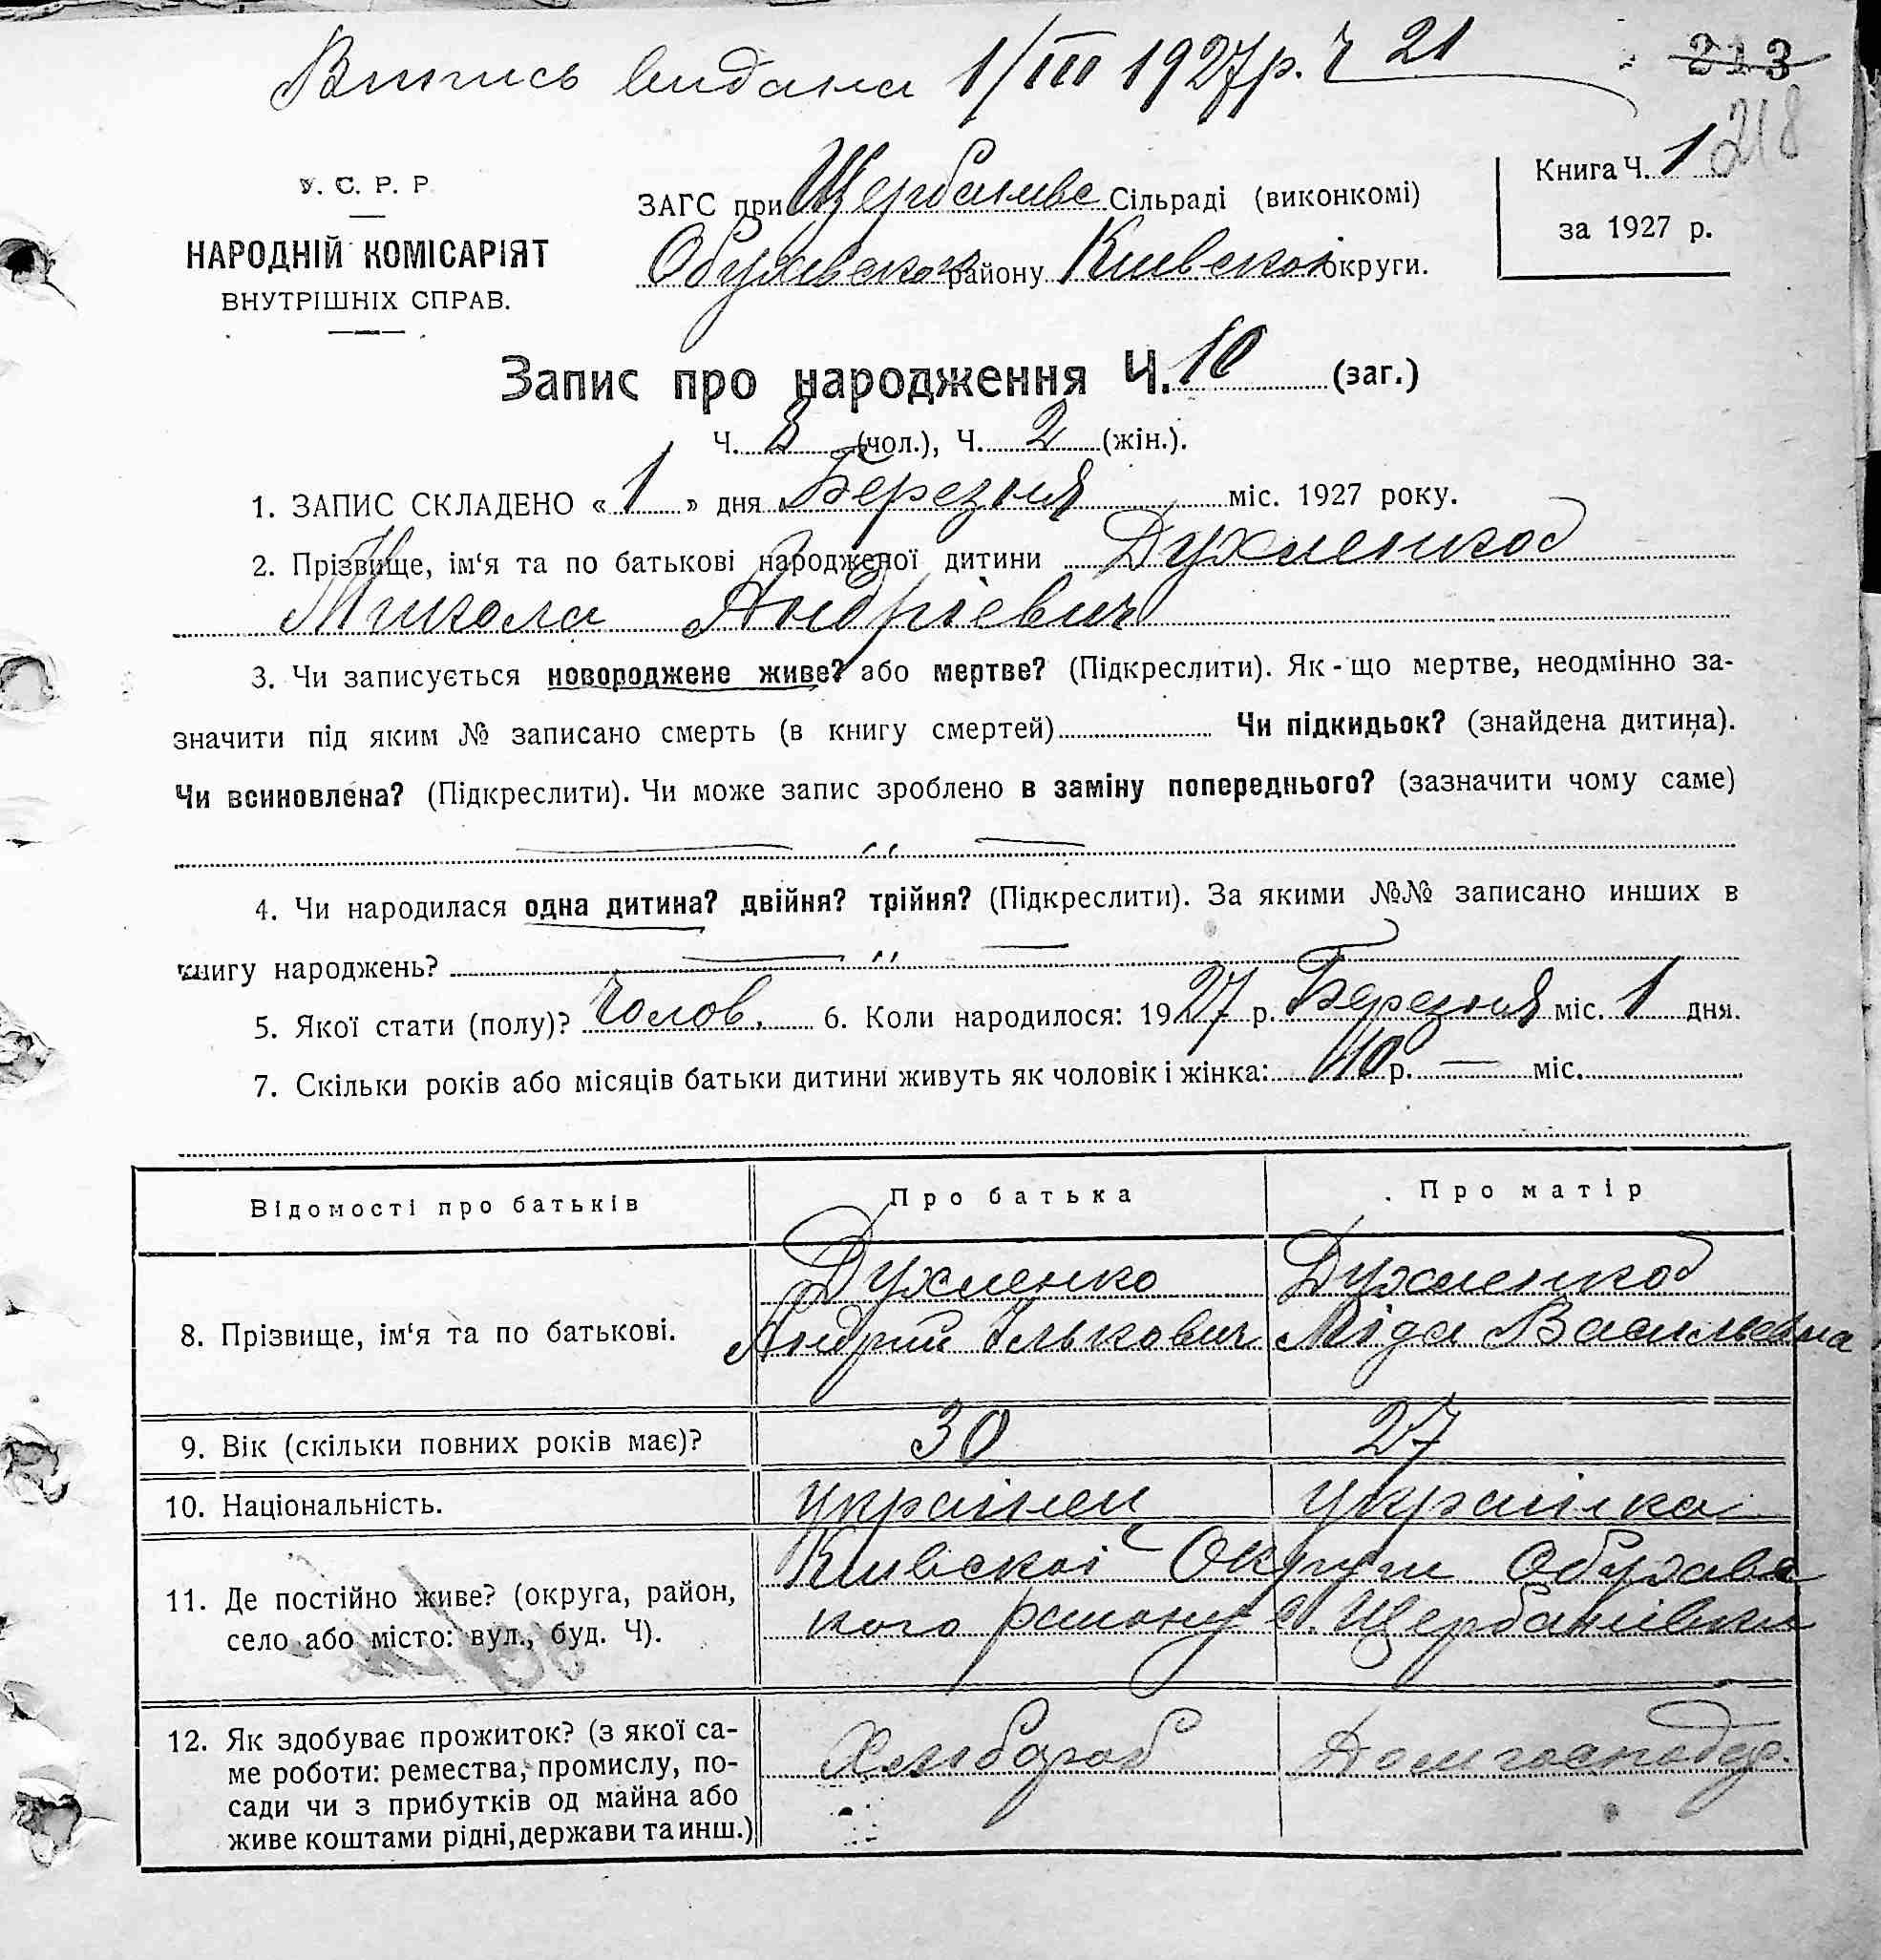 Випись видана 1/III 1927 р. Ч 21
213
218
У. С. Р. Р
НАРОДНІЙ КОМІСАРІЯТ
ВНУТРІШНІХ СПРАВ.
ЗАГС при Щербанівс Сільраді (виконкомі)
Обухівського району Київскої округи.
Книга Ч. 1
за 1927 р.
Запис про народження Ч. 10 (заг.)
Ч. 8 (чол.), Ч. 2 (жін.).
1. ЗАПИС СКЛАДЕНО « 1 » дня Березня міс. 1927 року.
2. Прізвище, ім‘я та по батькові народженої дитини Духненко
Микола Андрієвич
3. Чи записується новороджене живе? або мертве? (Підкреслити). Як-що мертве, неодмінно за-
значити під яким № записано смерть (в книгу смертей) Чи підкидьок? (знайдена дитина).
Чи всиновлена? (Підкреслити). Чи може запис зроблено в заміну попереднього? (зазначити чому саме)
— „ —
4. Чи народилася одна дитина? двійня? трійня? (Підкреслити). За якими №№ записано инших в
книгу народжень? — „ —
5. Якої стати (полу)? Чолов. 6. Коли народилося: 1927 р. Березня міс. 1 дня.
7. Скільки років або місяців батьки дитини живуть як чоловік і жінка: 10 р. — міс.
Відомості про батьків Про батька Про матір
Духненко Духненко
8. Прізвище, ім‘я та по батькові. Андрий Ількович Васильевна
9. Вік (скільки повних років має)? 30 27
10. Національність. українец українка
11. Де постійно живе? (округа, район,
село або місто: вул., буд. Ч).
Київскої Округи Обухавс
кого району с. Щербанівки
12. Як здобуває прожиток? (з якої са-
ме роботи: ремества, промислу, по-
сади чи з прибутків од майна або
живе коштами рідні, держави та инш.)
Хлібороб Домгосподар.